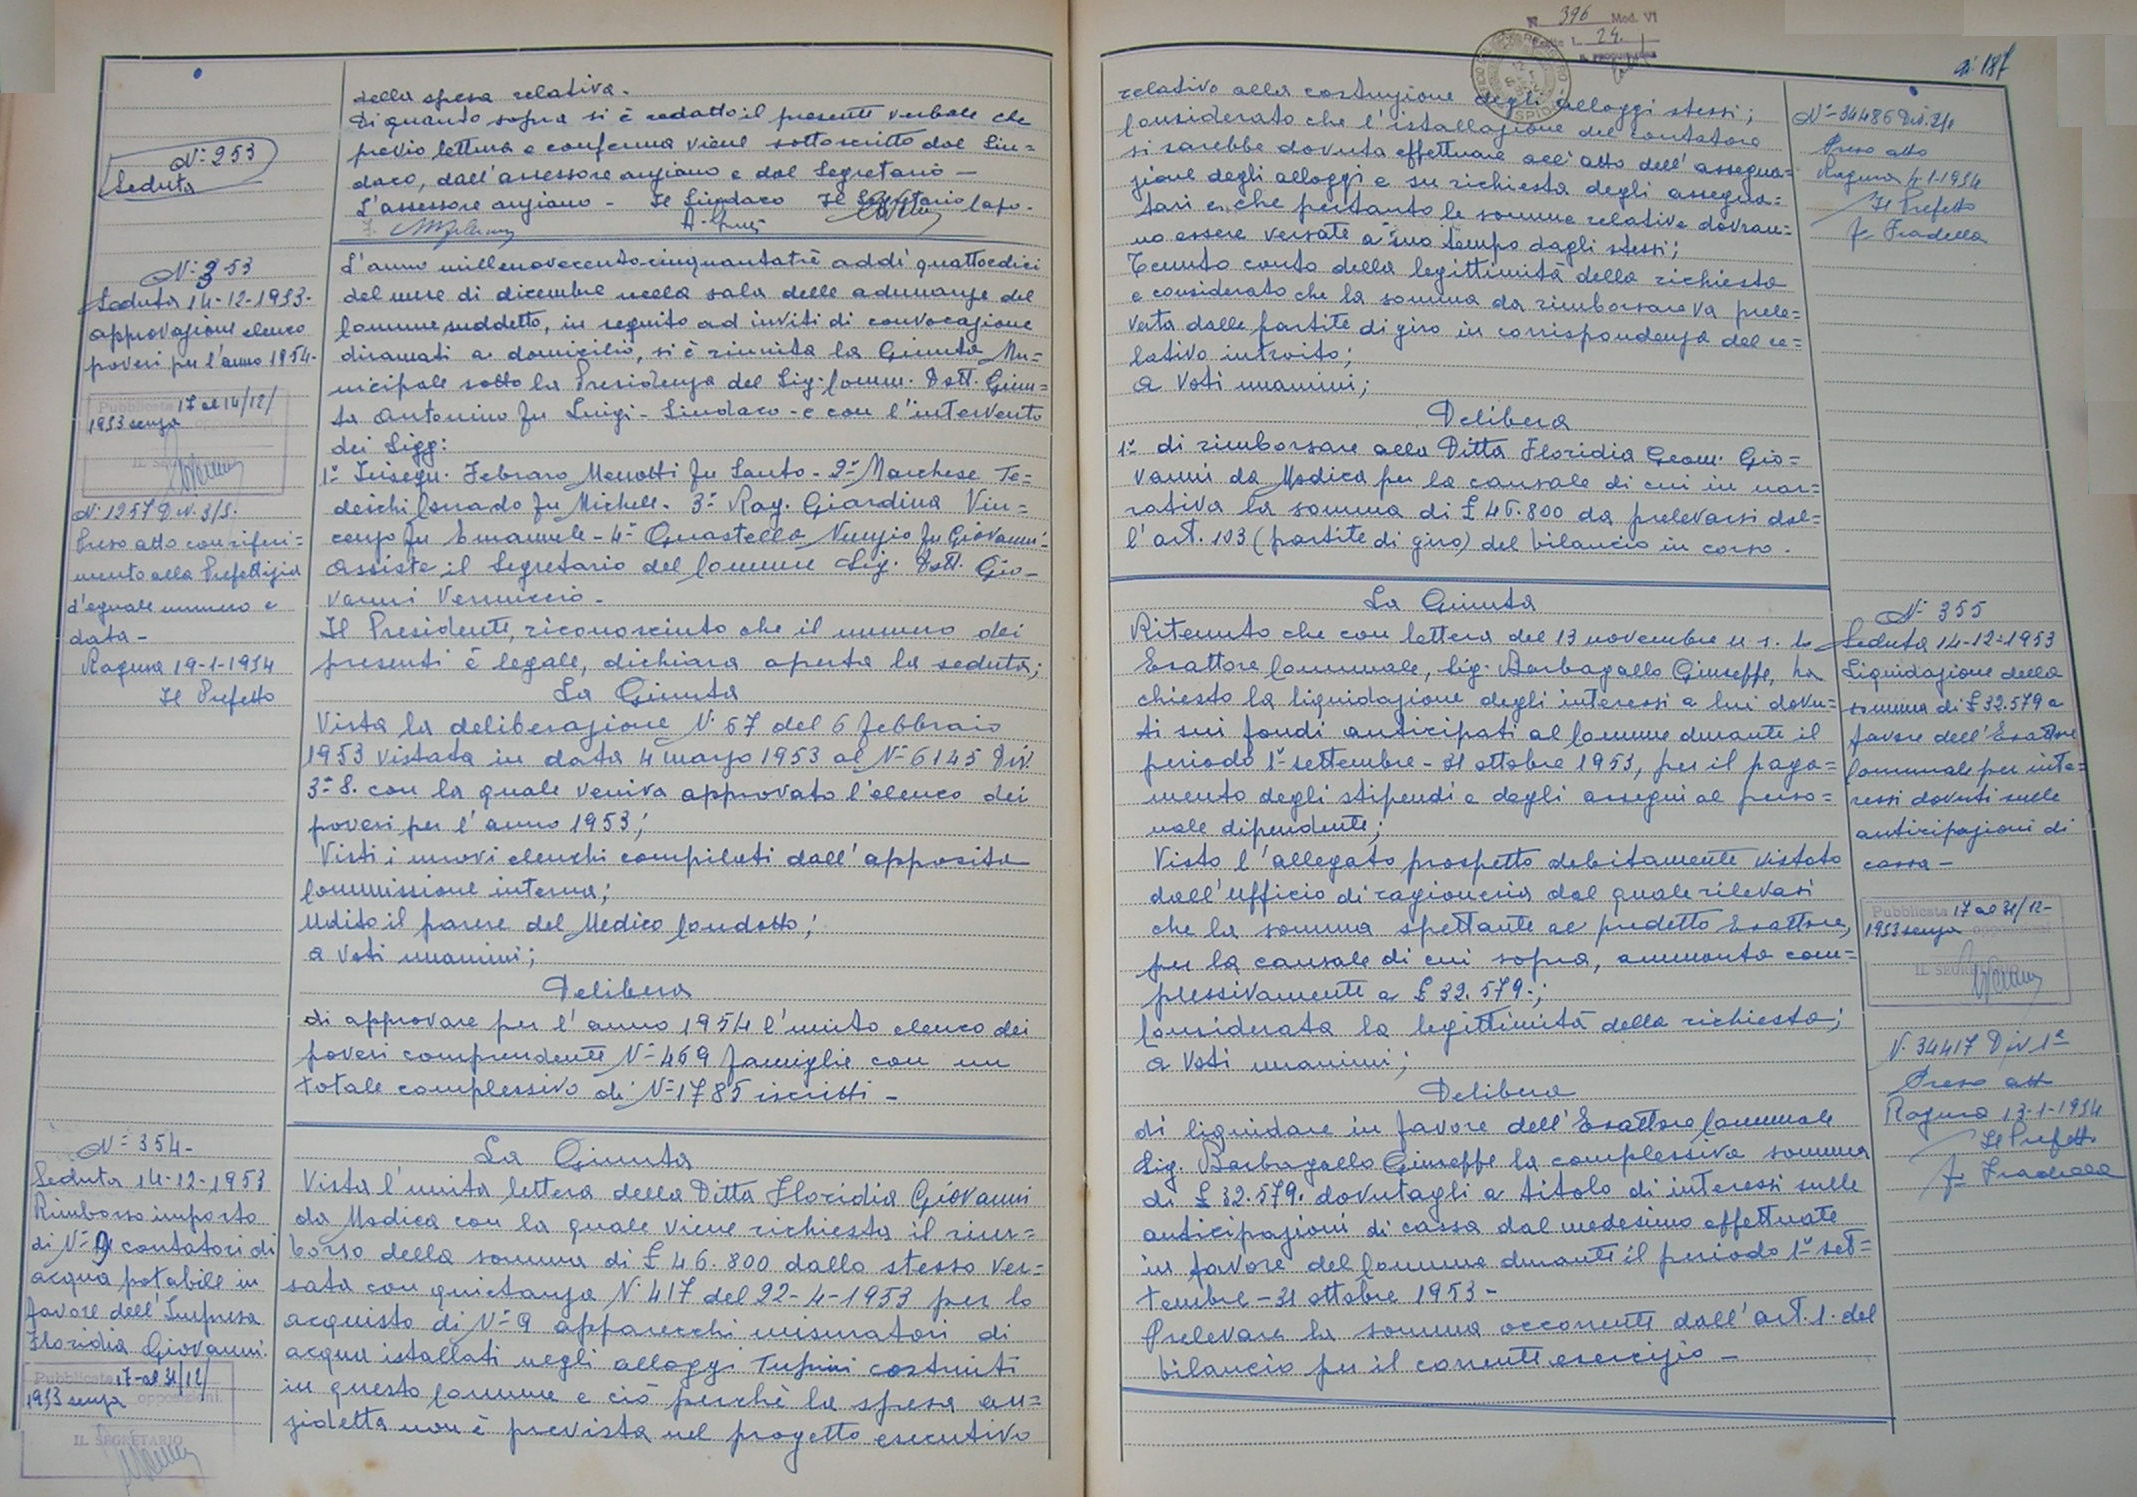 N° 253
Seduta
della spesa relativa.
Di quanto sopra si è redatto il presente verbale che
previo lettura e conferma viene sottoscritto dal Sin=
daco, dall'assessore anziano e dal Segretario —
L'assessore anziano - Il Sindaco Il Segretario Capo.
N° 353
Seduta 14-12-1953-
approvazione elenco
poveri per l'anno 1954-
Pubblicata 17 al 14/12/
1953 senza opposizioni
IL SE
N. 1257 Div. 3/S.
Preso atto con riferi=
mento alla Prefettizia
d'eguale numero e
data -
Ragusa 19-1-1954
Il Prefetto
L'anno millenovecentocinquantatrè addì quattordici
del mese di dicembre nella sala delle adunanze del
Comune suddetto, in seguito ad inviti di convocazione
diramati a domicilio, si è riunita la Giunta Mu=
nicipale sotto la Presidenza del Sig. Comm. Dott. Giun=
ta Antonino fu Luigi - Sindaco - e con l'intervento
dei Sigg:
1° Insegn. Febraro Menotti fu Santo - 2° Marchese Te=
deschi Corrado fu Michele. 3° Rag. Giardina Vin=
cenzo fu Emanuele - 4° Guastella Nunzio fu Giovanni-
Assiste il Segretario del Comune Sig. Dott. Gio-
vanni Vernuccio -
Il Presidente, riconosciuto che il numero dei
presenti è legale, dichiara aperta la seduta;
La Giunta
Vista la deliberazione N. 67 del 6 febbraio
1953 vistata in data 4 marzo 1953 al N° 6145 Div.
3° S. con la quale veniva approvato l'elenco dei
poveri per l'anno 1953;
Visti i nuovi elenchi compilati dall'apposita
Commissione interna;
Udito il parere del Medico Condotto;
a voti unanimi;
Delibera
di approvare per l'anno 1954 l'unito elenco dei
poveri comprendente N° 469 famiglie con un
totale complessivo di N° 1785 iscritti -
N° 354-
Seduta 14-12-1953
Rimborso importo
di N° 9 contatori di
acqua potabile in
favore dell'Impresa
Floridia Giovanni.
Pubblicata 17 al 31/12/
1953 senza opposizioni
IL SEGRETARIO
La Giunta
Vista l'unita lettera della Ditta Floridia Giovanni
da Modica con la quale viene richiesta il rim=
borso della somma di £ 46.800 dallo stesso ver=
sata con quietanza N. 417 del 22-4-1953 per lo
acquisto di N° 9 apparecchi misuratori di
acqua istallati negli alloggi Tupini costruiti
in questo Comune e ciò perchè la spesa an=
zidetta non è prevista nel progetto esecutivo
N 396 Mod. VI
L. 24.
n. 187
relativo alla costruzione degli alloggi stessi;
Considerato che l'istallazione del contatore
si sarebbe dovuta effettuare all'atto dell'assegna=
zione degli alloggi e su richiesta degli assegna=
tari e che pertanto le somme relative dovran=
no essere versate a suo tempo dagli stessi;
Tenuto conto della legittimità della richiesta
e considerato che la somma da rimborsare va prele=
vata dalle partite di giro in corrispondenza del re=
lativo introito;
a voti unanimi;
Delibera
1° di rimborsare alla Ditta Floridia Geom. Gio=
vanni da Modica per la causale di cui in nar=
rativa la somma di £ 46.800 da prelevarsi dal=
l'art. 103 (partite di giro) del bilancio in corso.
N° 34486 Div. 2/1
Preso atto
Ragusa 4-1-1954
Il Prefetto
f. Fradella
La Giunta
Ritenuto che con lettera del 13 novembre u. s. lo
Esattore Comunale, Sig. Barbagallo Giuseppe, ha
chiesto la liquidazione degli interessi a lui dovu=
ti sui fondi anticipati al Comune durante il
periodo 1° settembre - 31 ottobre 1953, per il paga=
mento degli stipendi e degli assegni al perso=
nale dipendente;
Visto l'allegato prospetto debitamente vistato
dall'Ufficio di ragioneria dal quale rilevasi
che la somma spettante al predetto Esattore,
per la causale di cui sopra, ammonta com=
plessivamente a £ 32.579.;
Considerata la legittimità della richiesta;
a voti unanimi;
Delibera
di liquidare in favore dell'Esattore Comunale
Sig. Barbagallo Giuseppe la complessiva somma
di £ 32.579. dovutagli a titolo di interessi sulle
anticipazioni di cassa dal medesimo effettuate
in favore del Comune durante il periodo 1° set=
tembre - 31 ottobre 1953 -
Prelevare la somma occorrente dall'art. 1. del
bilancio per il corrente esercizio -
N° 355
Seduta 14-12-1953
Liquidazione della
somma di £ 32.579 a
favore dell'Esattore
Comunale per inte=
ressi dovuti sulle
anticipazioni di
cassa -
Pubblicata 17 al 31/12-
1953 senza opposizioni
IL SEGRE
N. 34417 Div 1ª
Preso atto
Ragusa 13-1-1954
Il Prefetto
f. Fradella